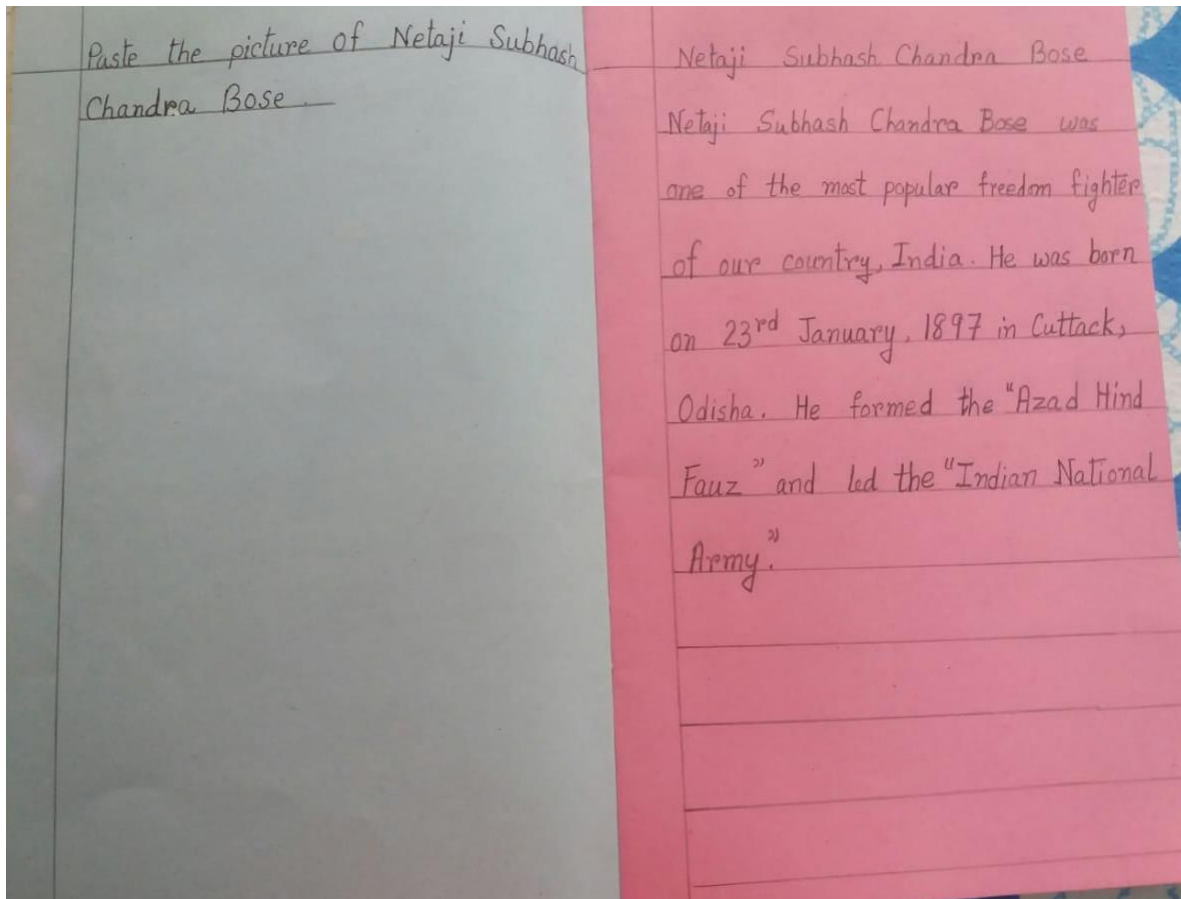 Paste the picture of Netaji Subhash
Chandra Bose
Netaji Subhash Chandra Bose
Netaji Subhash Chandra Bose was
one of the most popular freedom fighter
of our country, India. He was born
on 23rd January, 1897 in Cuttack,
Odisha. He formed the "Azad Hind
Fauz" and led the "Indian National
Army."